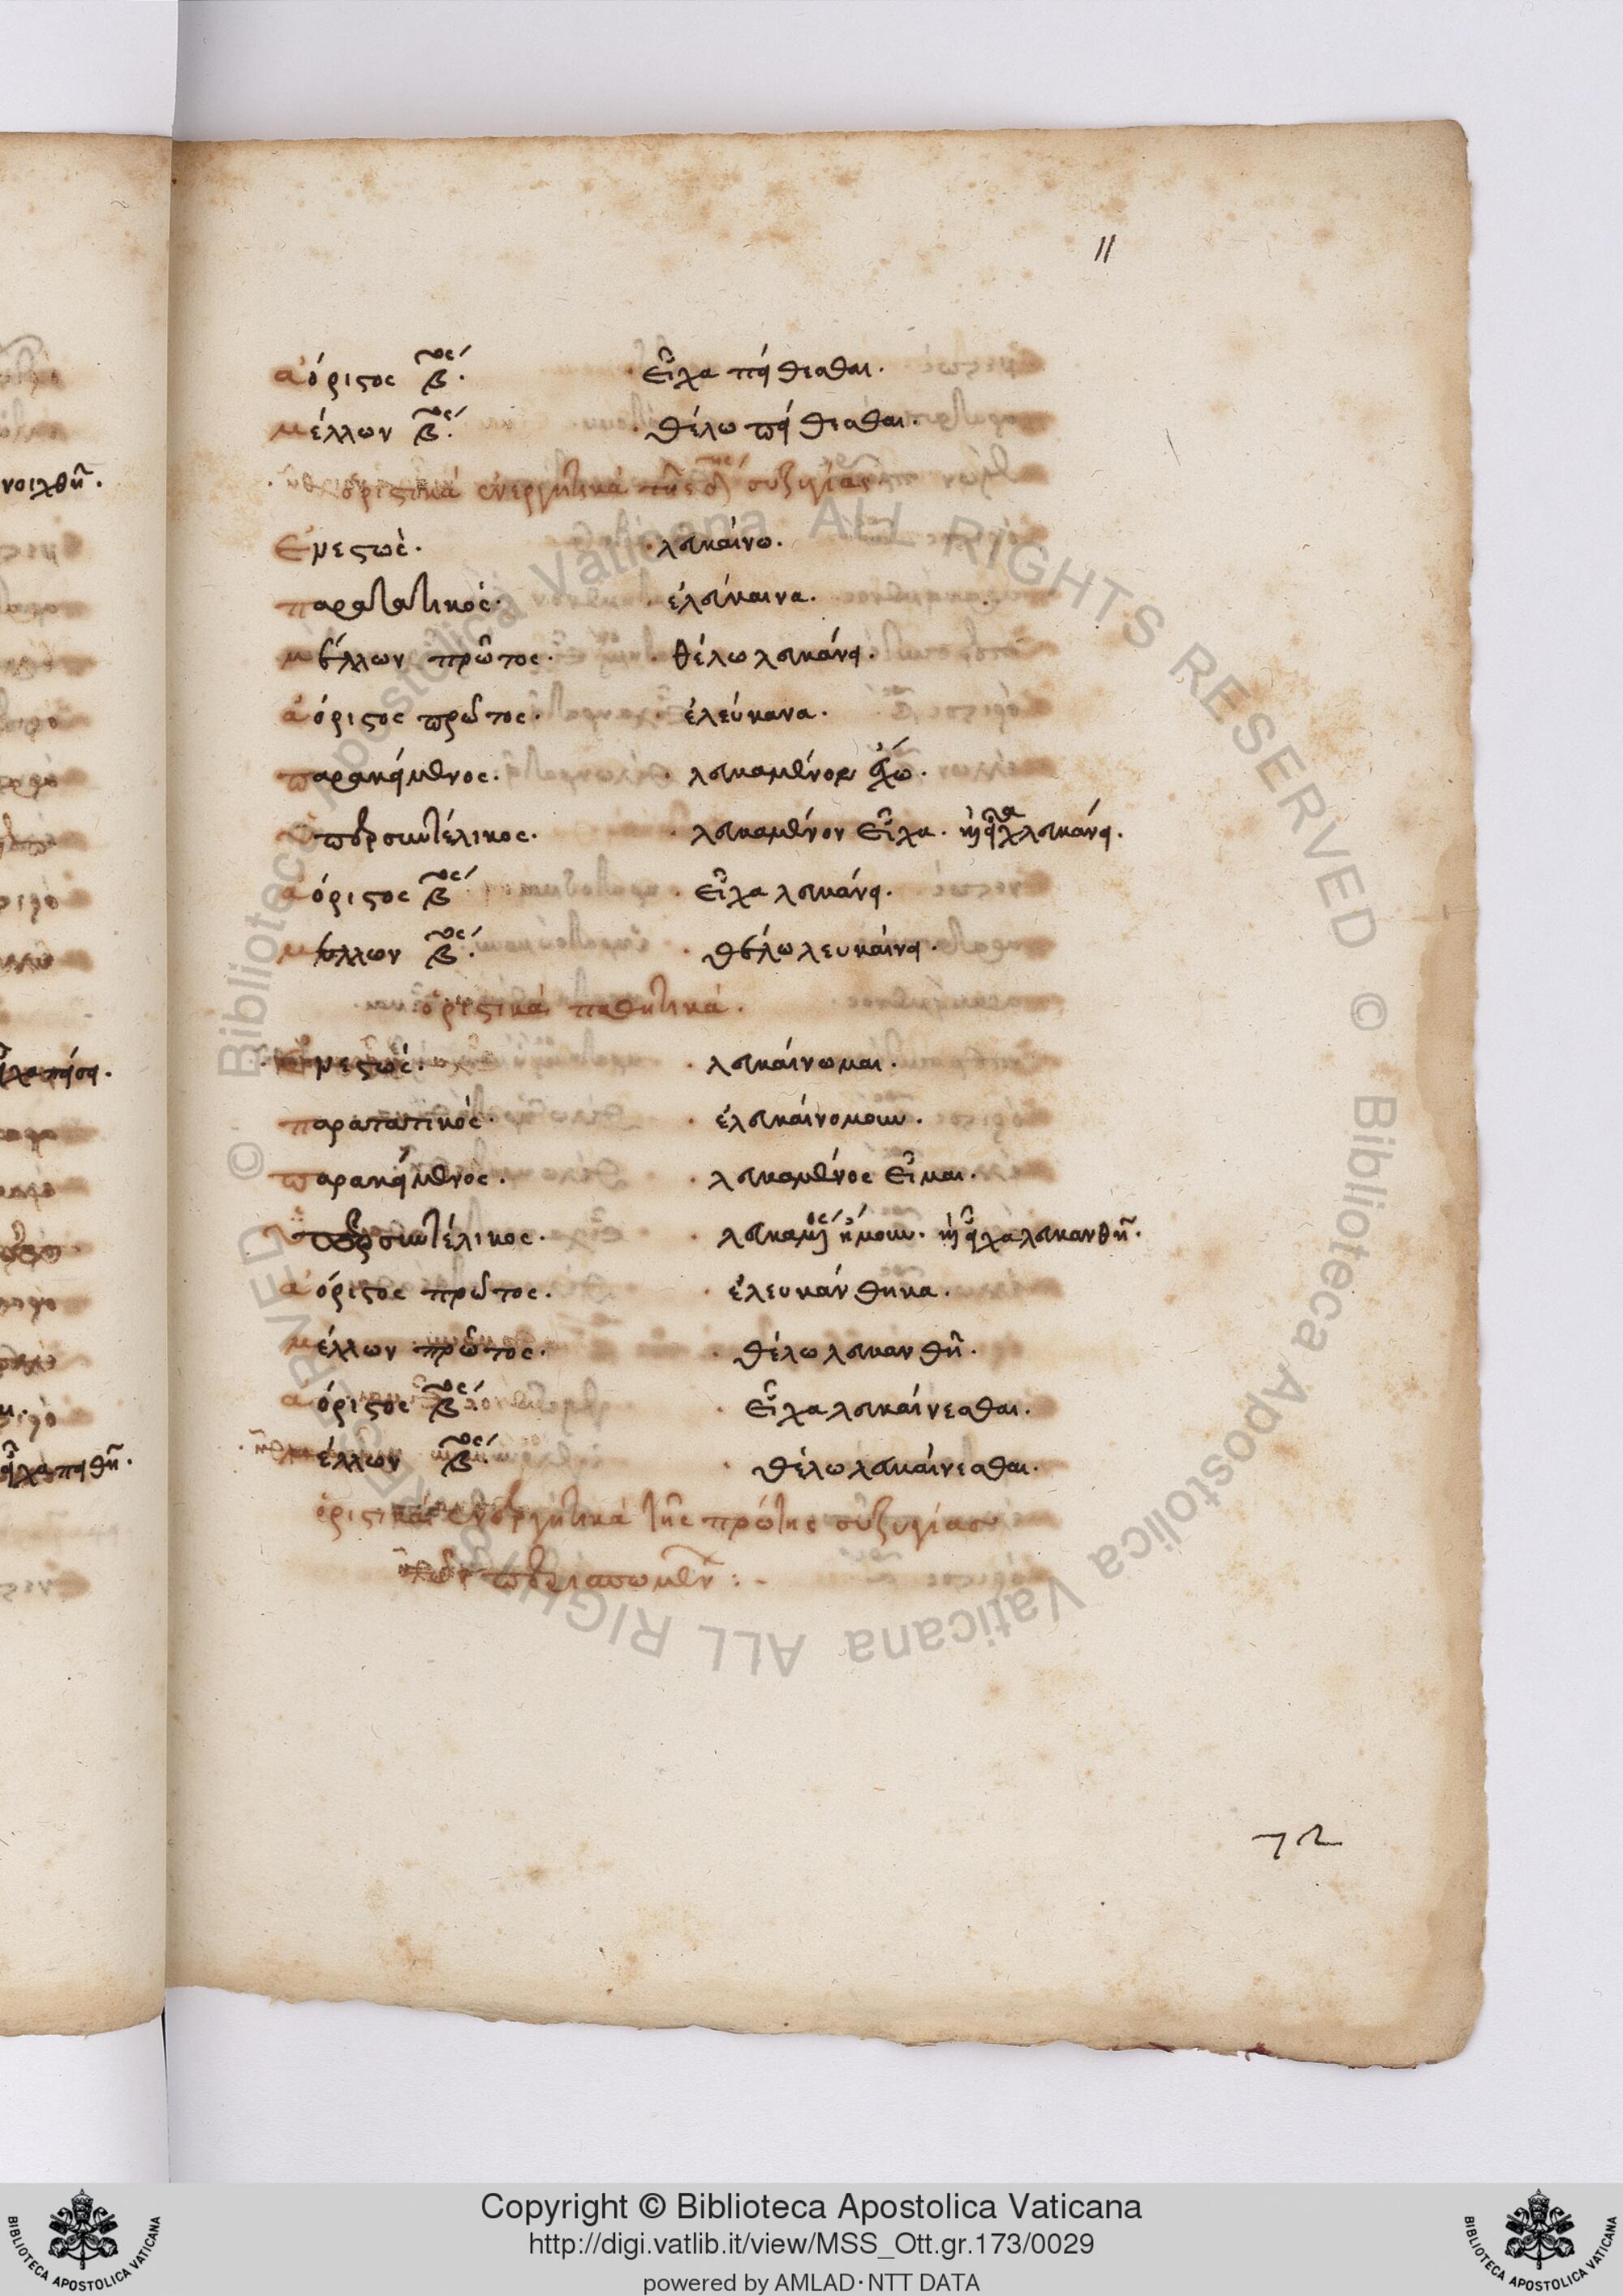 11
ἀόριστος β^ος. εἶχα πείθεσθαι.
μέλλων β^ος. θέλω πείθεσθαι.
ὁριστικά ἐνεργητικά τῆς δ^ης συζυγίας
Ἐνεστώς. λευκαίνω.
παρατατικός. ἐλεύκαινα.
μέλλων πρῶτος. θέλω λευκάνει.
ἀόριστος πρῶτος. ἐλεύκανα.
παρακείμενος. λευκαμένον ἔχω.
ὑπερσυντέλικος. λευκαμένον εἶχα. ἢ εἶχα λευκάνει.
ἀόριστος β^ος εἶχα λευκάνει.
μέλλων β^ος. θέλω λευκαίνει.
ὁριστικά παθητικά.
Ἐνεστώς. λευκαίνωμαι.
παρατατικός. ἐλευκαίνομουν.
παρακείμενος. λευκαμένος εἶμαι.
ὑπερσυντέλικος. λευκαμένος ἤμουν. ἢ εἶχα λευκανθῆ.
ἀόριστος πρῶτος. ἐλευκάνθηκα.
μέλλων πρῶτος. θέλω λευκανθῆ.
ἀόριστος β^ος εἶχα λευκαίνεσθαι.
μέλλων β^ος. θέλω λευκαίνεσθαι.
ὁριστικά ἐνεργητικά τῆς πρώτης συζυγίας
τῶν περισπωμένων :-
72
Copyright © Biblioteca Apostolica Vaticana
http://digi.vatlib.it/view/MSS_Ott.gr.173/0029
powered by AMLAD·NTT DATA
BIBLIOTECA APOSTOLICA VATICANA
BIBLIOTECA APOSTOLICA VATICANA
© Biblioteca Apostolica Vaticana ALL RIGHTS RESERVED © Biblioteca Apostolica Vaticana ALL RIGHTS RESERVED